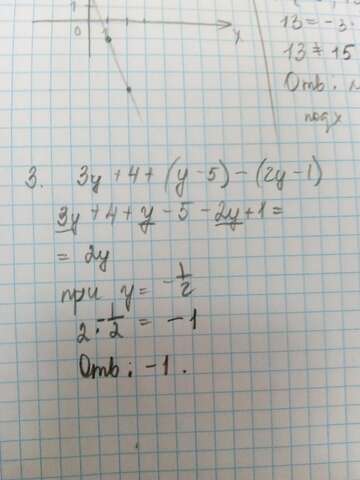 1
0 1 x
13 = -3·
13 ≠ 15
Отв:
подх
3. 3y + 4 + (y - 5) - (2y - 1)
3y + 4 + y - 5 - 2y + 1 =
= 2y
при y = -1/2
2 · -1/2 = -1
Отв: -1.